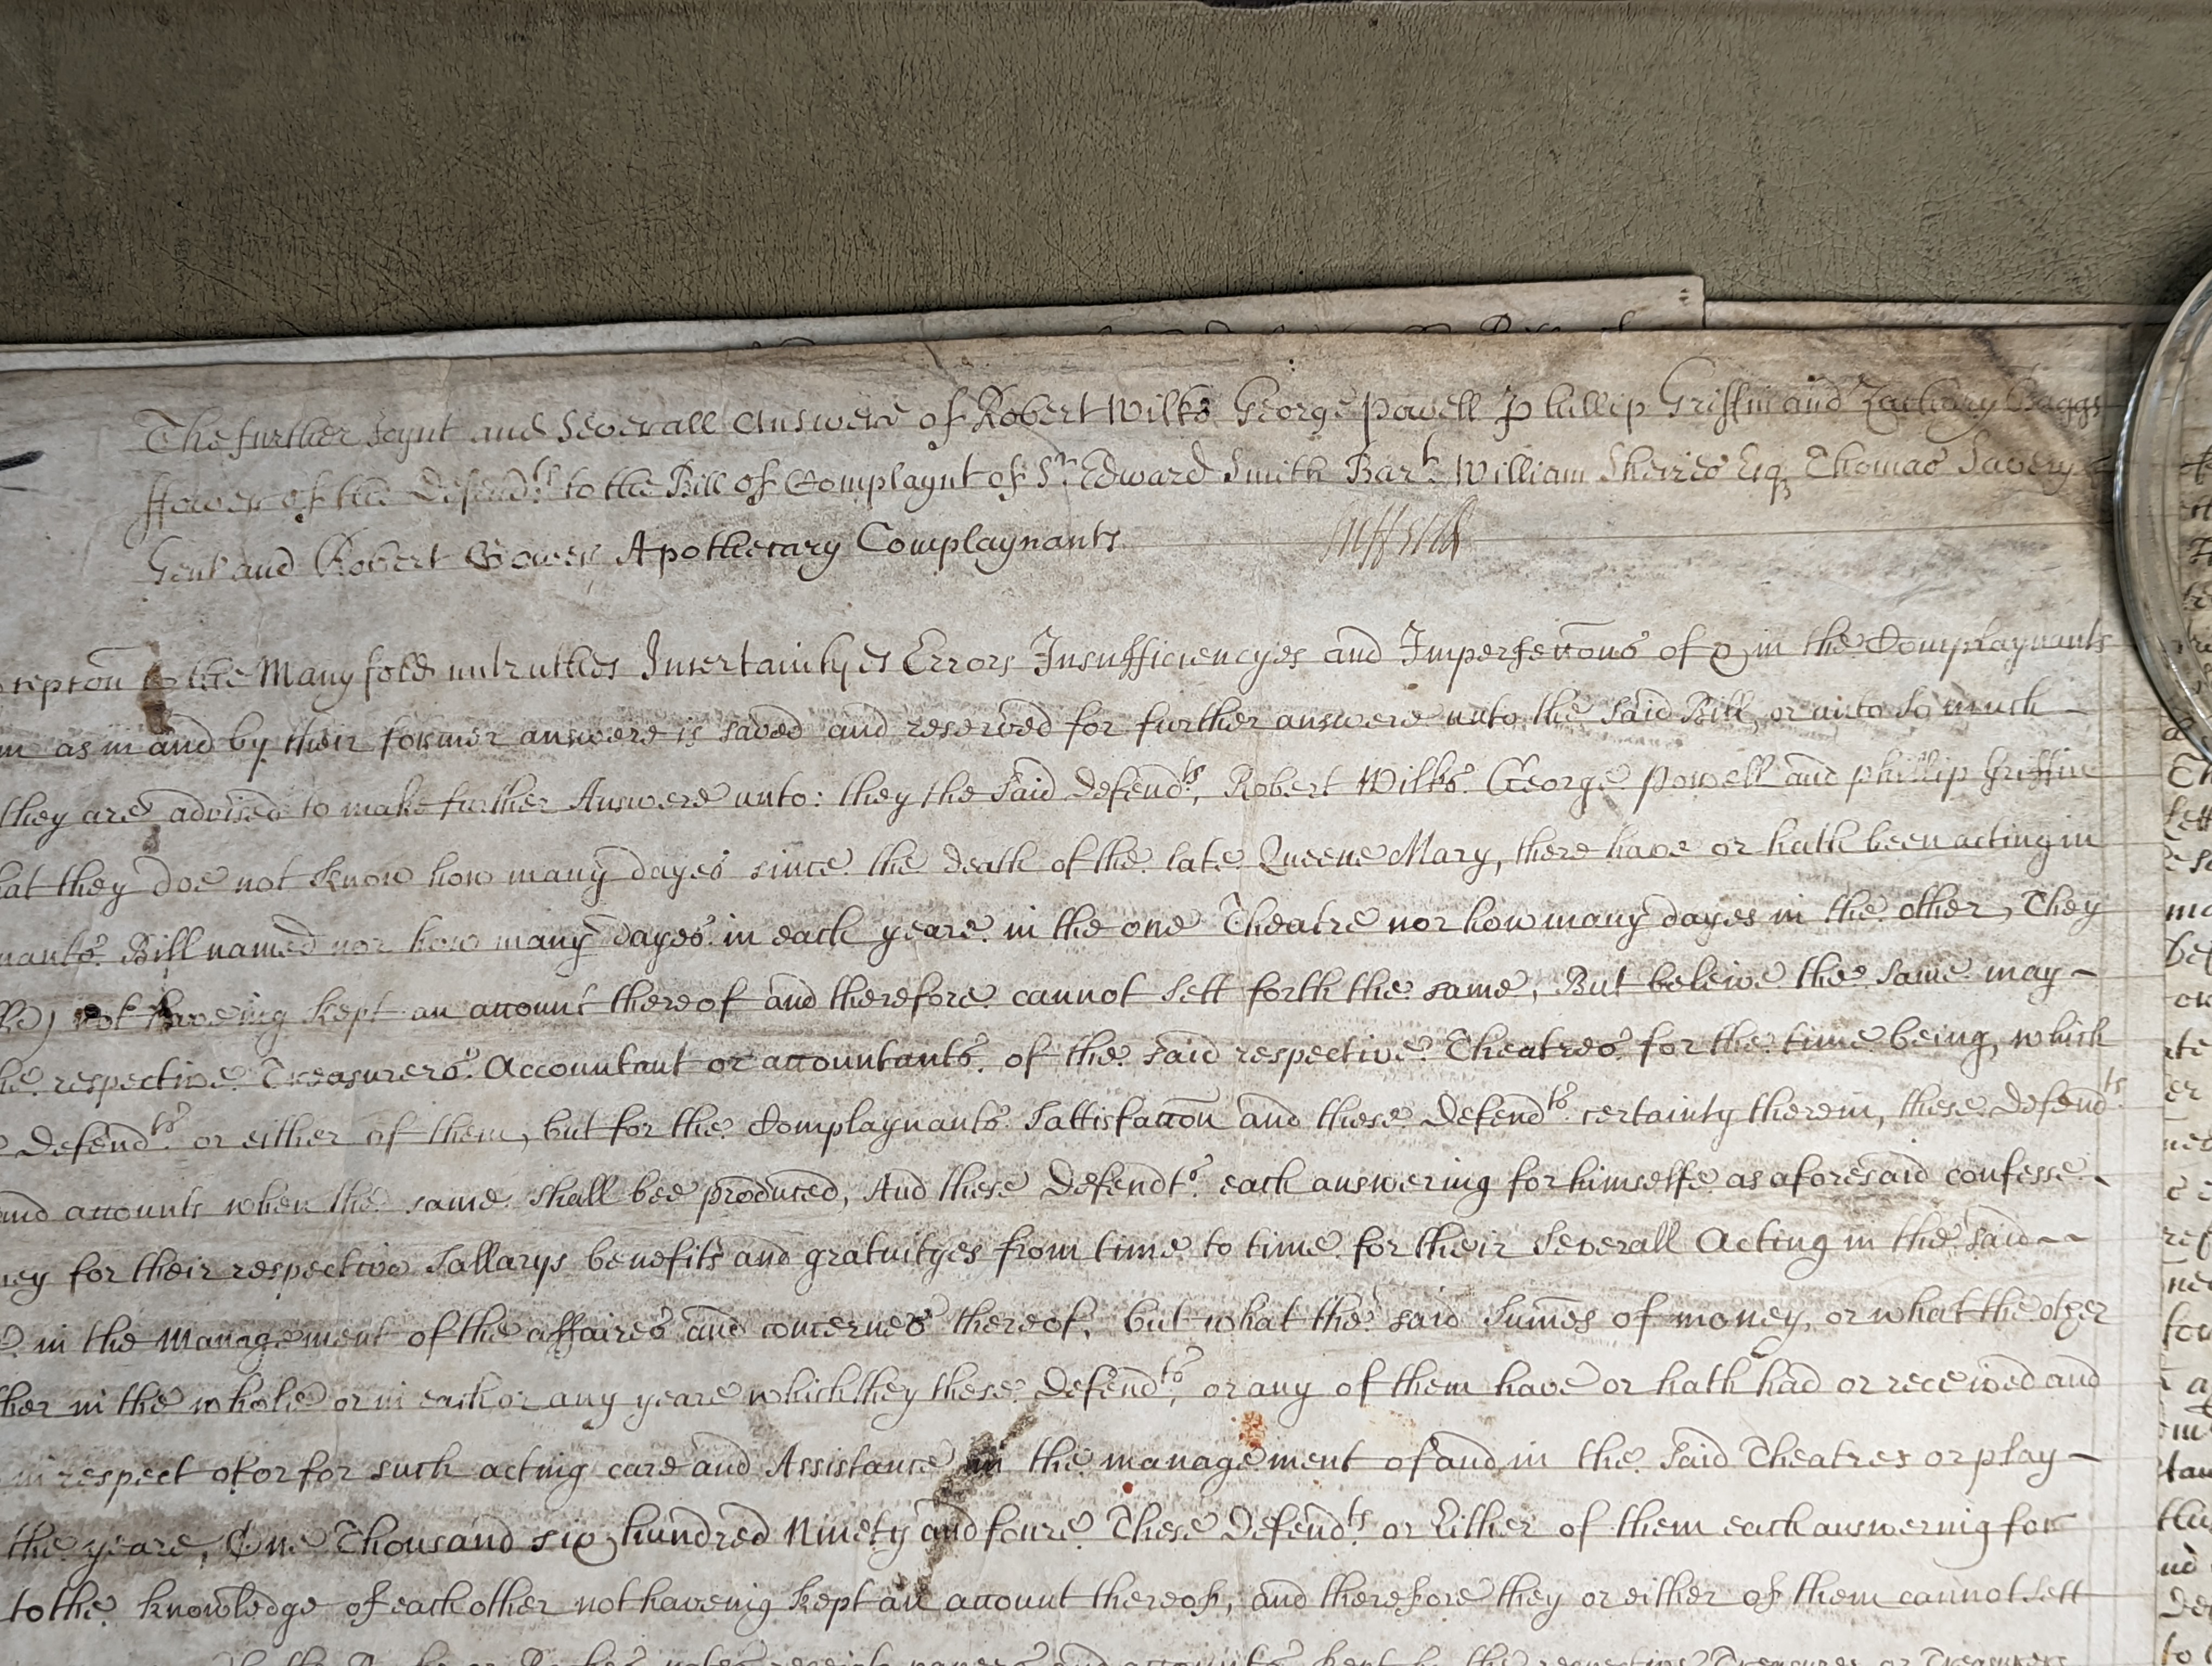 The further Joynt and Severall Answere of Robert Wilks George Powell Phillip Griffin and Zachary Baggs
ffower of the Defend.ts to the Bill of Complaynt of Sr. Edward Smith Bart. William Sheires Esq Thomas Savery
Gent and Robert Gower Apothecary Complaynants
the Manyfold untruthes Incertaintyes Errors Insufficiencyes and Imperfeccons of & in the Complaynants
as in and by their former answere is saved and reserved for further answere unto the said Bill, or unto so much
they are advised to make further Answere unto: they the said Defend.ts, Robert Wilks George Powell and phillip Griffin
they doe not know how many dayes since the death of the late Queene Mary, there have or hath been acting in
Bill named nor how many dayes in each yeare in the one Theatre nor how many dayes in the other, They
not haveing kept an account thereof and therefore cannot sett forth the same, But beleive the same may
respective Treasurers Accountant or accountants of the said respective Theatres for the time being, which
Defend.ts or either of them, but for the Complaynants Sattisfaccon and these Defend.ts certainty therein, these Defend.ts
accounts when the same shall bee produced, And these Defendts each answering for himselfe as aforesaid confesse
for their respective Sallarys benefits and gratuityes from time to time for their Severall Acting in the said
in the Management of the affaires and concernes thereof, but what the said Sumes of money, or what the other
in the whole or in each or any yeare which they these Defend.ts, or any of them have or hath had or received and
respect of or for such acting care and Assistance in the management of and in the said Theatres or play
the yeare, One Thousand six hundred Ninety and foure These Defend.ts or Either of them each answering for
to the knowledge of each other not haveing kept an account thereof, and therefore they or either of them cannot sett